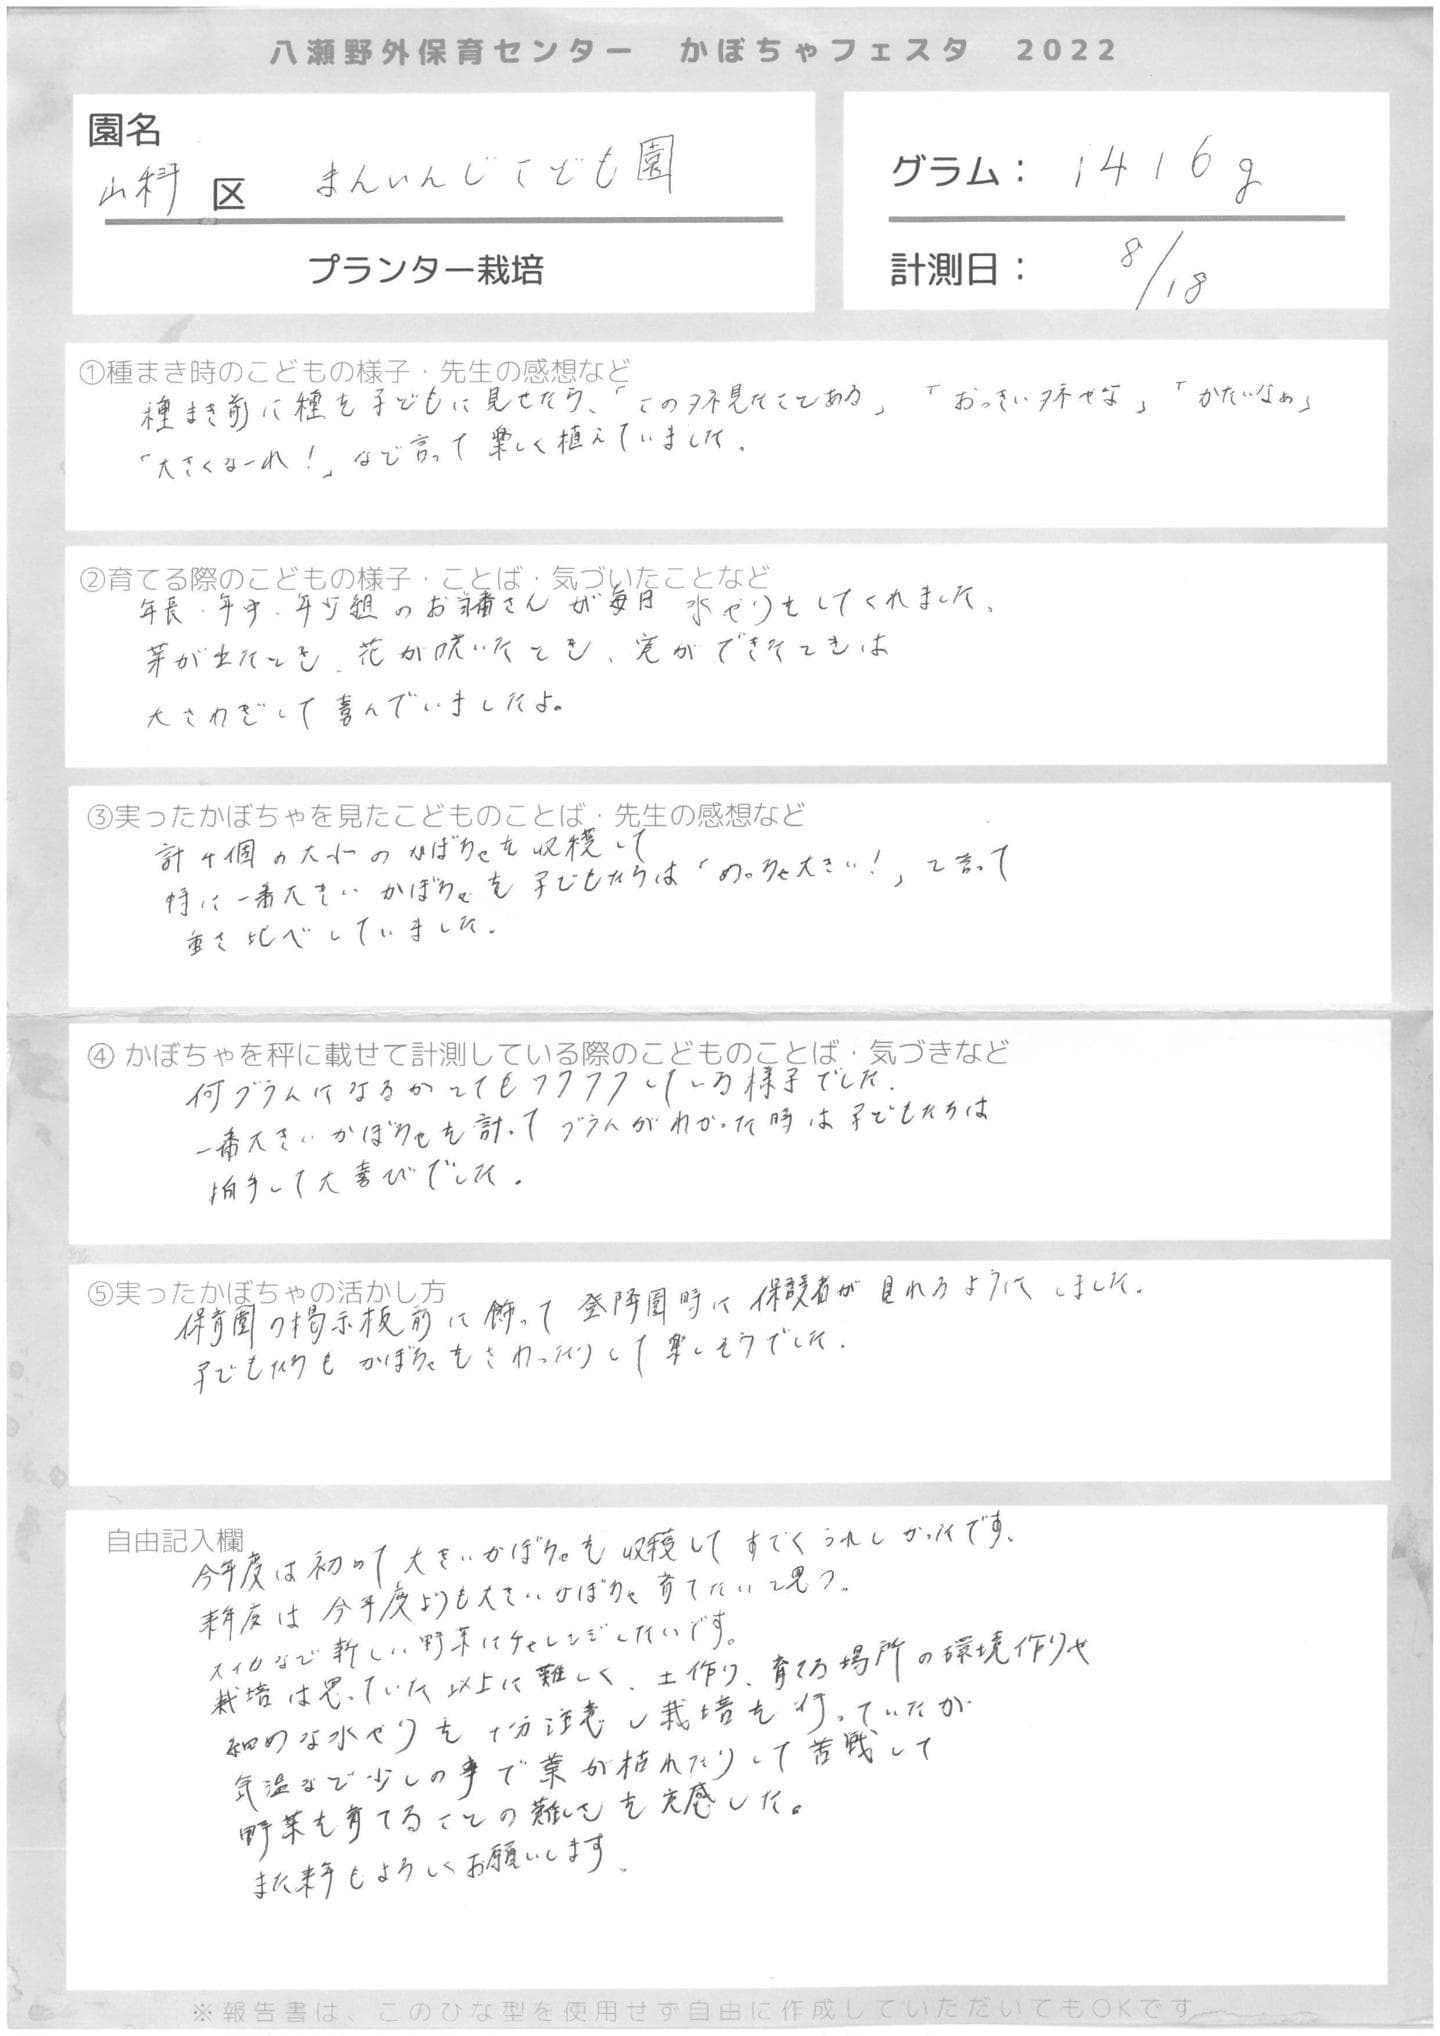 八瀬野外保育センター かぼちゃフェスタ 2022
園名
山科 区 まんいんじこども園
プランター栽培
グラム： 1416g
計測日： 8/18
①種まき時のこどもの様子・先生の感想など
種まき前に種を子どもに見せたら、「この種見たことある」「おっきい種やな」「かたいなぁ」
「大きくなーれ！」など言って楽しく植えていました。
②育てる際のこどもの様子・ことば・気づいたことなど
年長・年中・年少組のお当番さんが毎日 水やりをしてくれました。
芽が出たとき、花が咲いたとき、実ができたときは
大さわぎして喜んでいましたよ。
③実ったかぼちゃを見たこどものことば・先生の感想など
計4個の大小のかぼちゃを収穫して
特に一番大きいかぼちゃを子どもたちは「めっちゃ大きい！」と言って
重さ比べしていました。
④ かぼちゃを秤に載せて計測している際のこどものことば・気づきなど
何グラムになるかとてもワクワクしている様子でした。
一番大きいかぼちゃを計ってグラムがわかった時は子どもたちは
拍手して大喜びでした。
⑤実ったかぼちゃの活かし方
保育園の掲示板前に飾って登降園時に保護者が見れるようにしました。
子どもたちもかぼちゃをさわったりして楽しそうでした。
自由記入欄
今年度は初めて大きいかぼちゃを収穫してすごくうれしかったです。
来年度は今年度よりも大きいかぼちゃ育てたいと思う。
スイカなど新しい野菜にチャレンジしたいです。
栽培は思っていた以上に難しく、土作り、育てる場所の環境作りや
細めな水やりを十分注意し栽培を行っていたが
気温など少しの事で葉が枯れたりして苦戦して
野菜を育てることの難しさを実感した。
また来年もよろしくお願いします。
※報告書は、このひな型を使用せず自由に作成していただいてもOKです